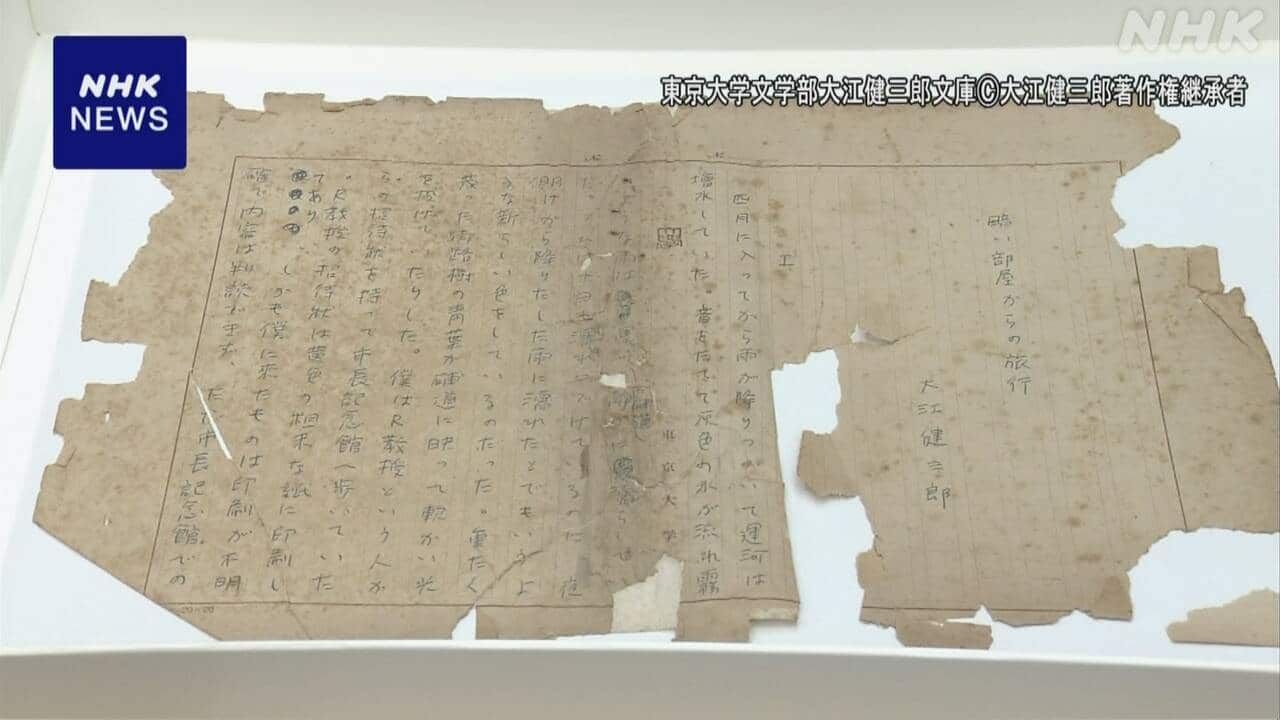 NHK
NHK
NEWS
東京大学文学部大江健三郎文庫©大江健三郎著作権継承者
暗い部屋からの旅行
大江健三郎
工
四月に入ってから雨が降りつづいて運河は
増水していた。音をたてて灰色の水が流れ霧
東京大学
明けから降りだした雨に濡れたとでもいうよ
うな新らしい色をしているのだった。重たく
茂った街路樹の青葉が礆道に映って軟かい光
を投げていたりした。僕はR教授という人か
らの招待状を持って市長記念館へ歩いていた
。R教授の招待状は黄色の粗末な紙に印刷し
てあり、しかも僕に来たものは印刷が不明
確で内容は判読できず、ただ市長記念館での
20×20